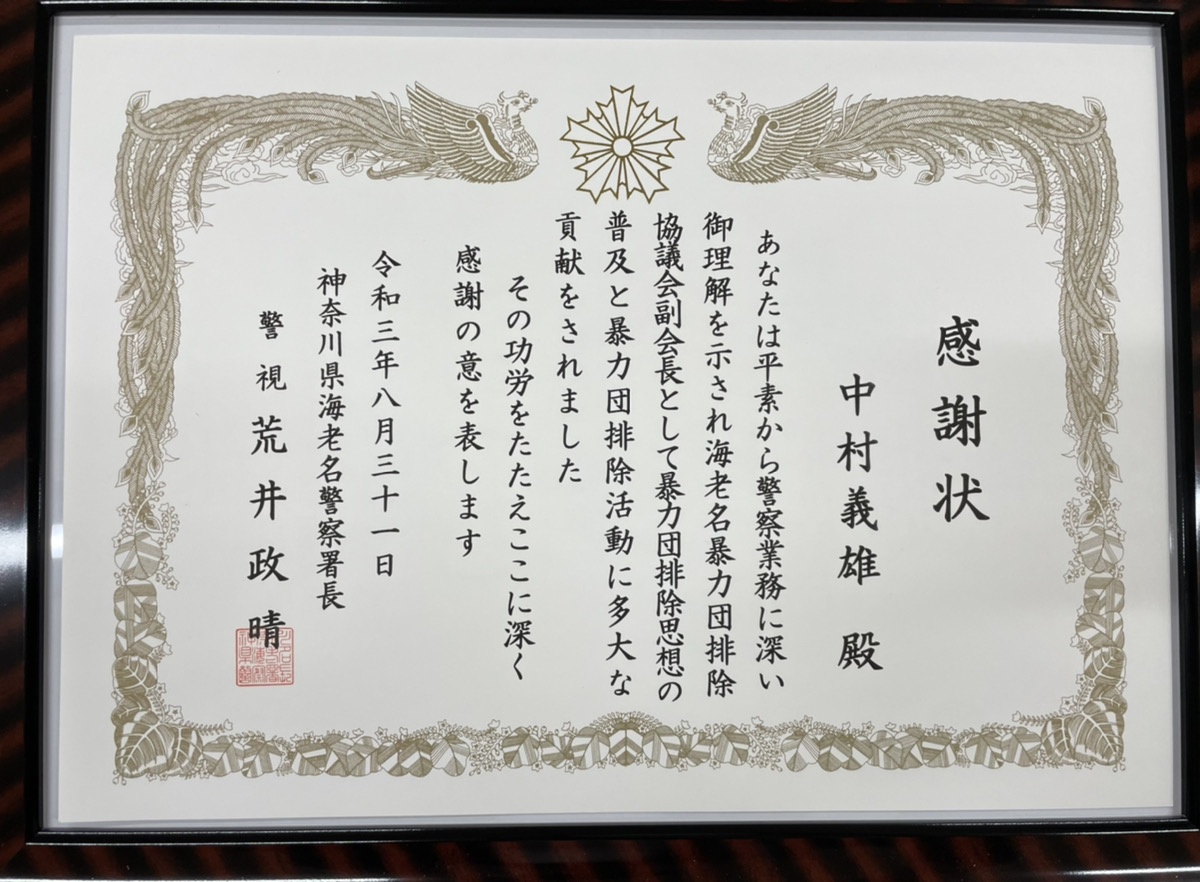 感謝状
中村義雄 殿
あなたは平素から警察業務に深い
御理解を示され海老名暴力団排除
協議会副会長として暴力団排除思想の
普及と暴力団排除活動に多大な
貢献をされました
その功労をたたえここに深く
感謝の意を表します
令和三年八月三十一日
神奈川県海老名警察署長
警視 荒井政晴